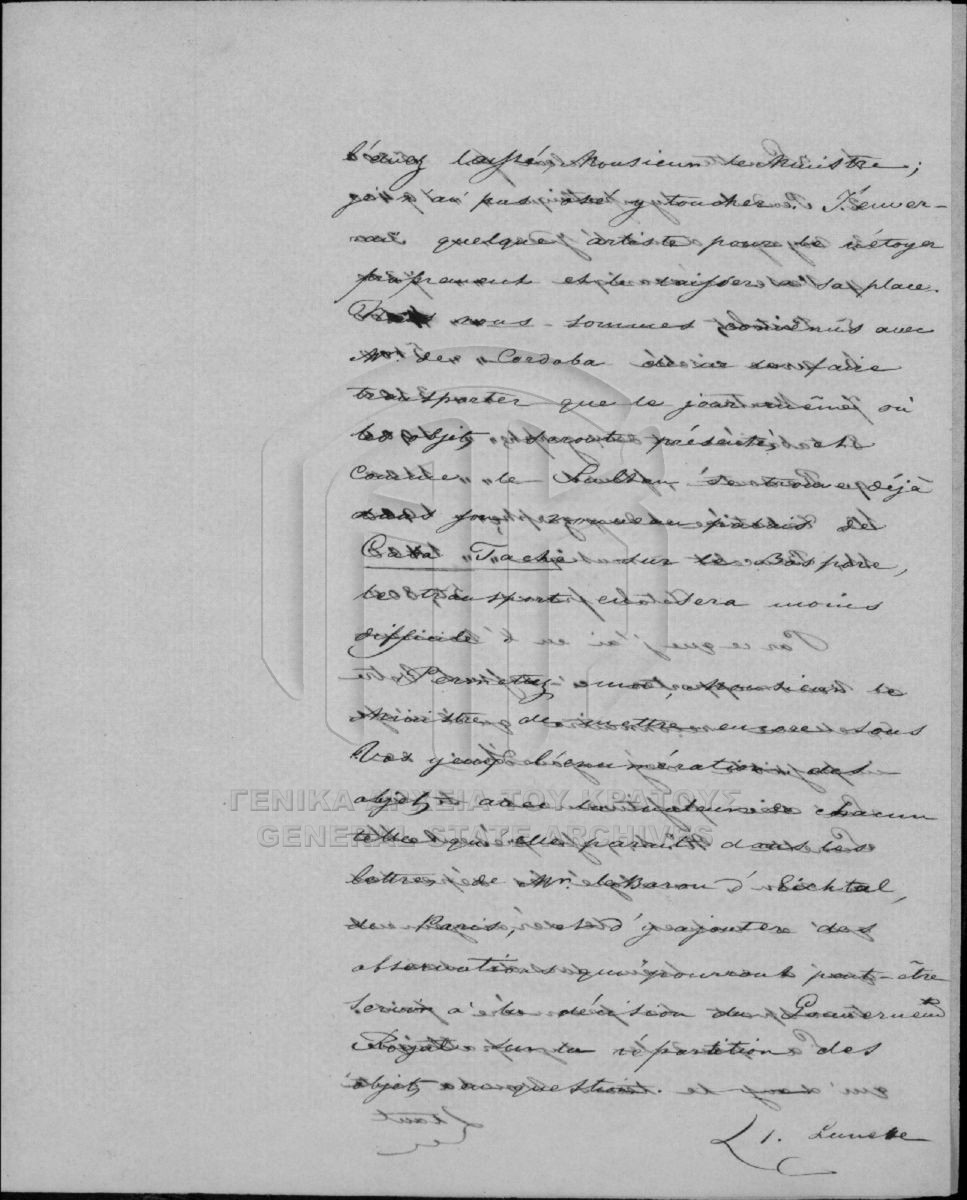 l'avez laissé, Monsieur le Ministre;
je n'ai pas osé y toucher. J'enver-
rai quelque artiste pour le nétoyer
proprement et le laisser à sa place.
nous sommes convenus avec
Mr. de Cordoba de ne les faire
transporter que le jour même où
les objets seront présentés, et
comme le Sultan se trouve déjà
au palais de
Tache sur le Bosphore,
le transport en sera moins
difficile
Permettez-moi, Monsieur le
Ministre, de mettre encore sous
Vos yeux l'énumération des
objets avec la valeur de chacun
telle qu'elle paraît dans les
lettres de Mr. le Baron d'Eichtal,
de Paris, et d'y ajouter des
observations qui pourront peut-être
servir à la décision du Gouvernemt
Royal sur la répartition des
objets en question.
ΓΕΝΙΚΑ ΑΡΧΕΙΑ ΤΟΥ ΚΡΑΤΟΥΣ
GENERAL STATE ARCHIVES